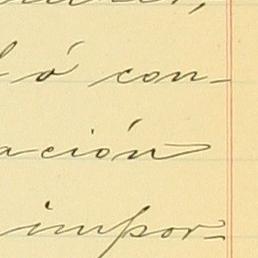 ó con-
ación
impor-